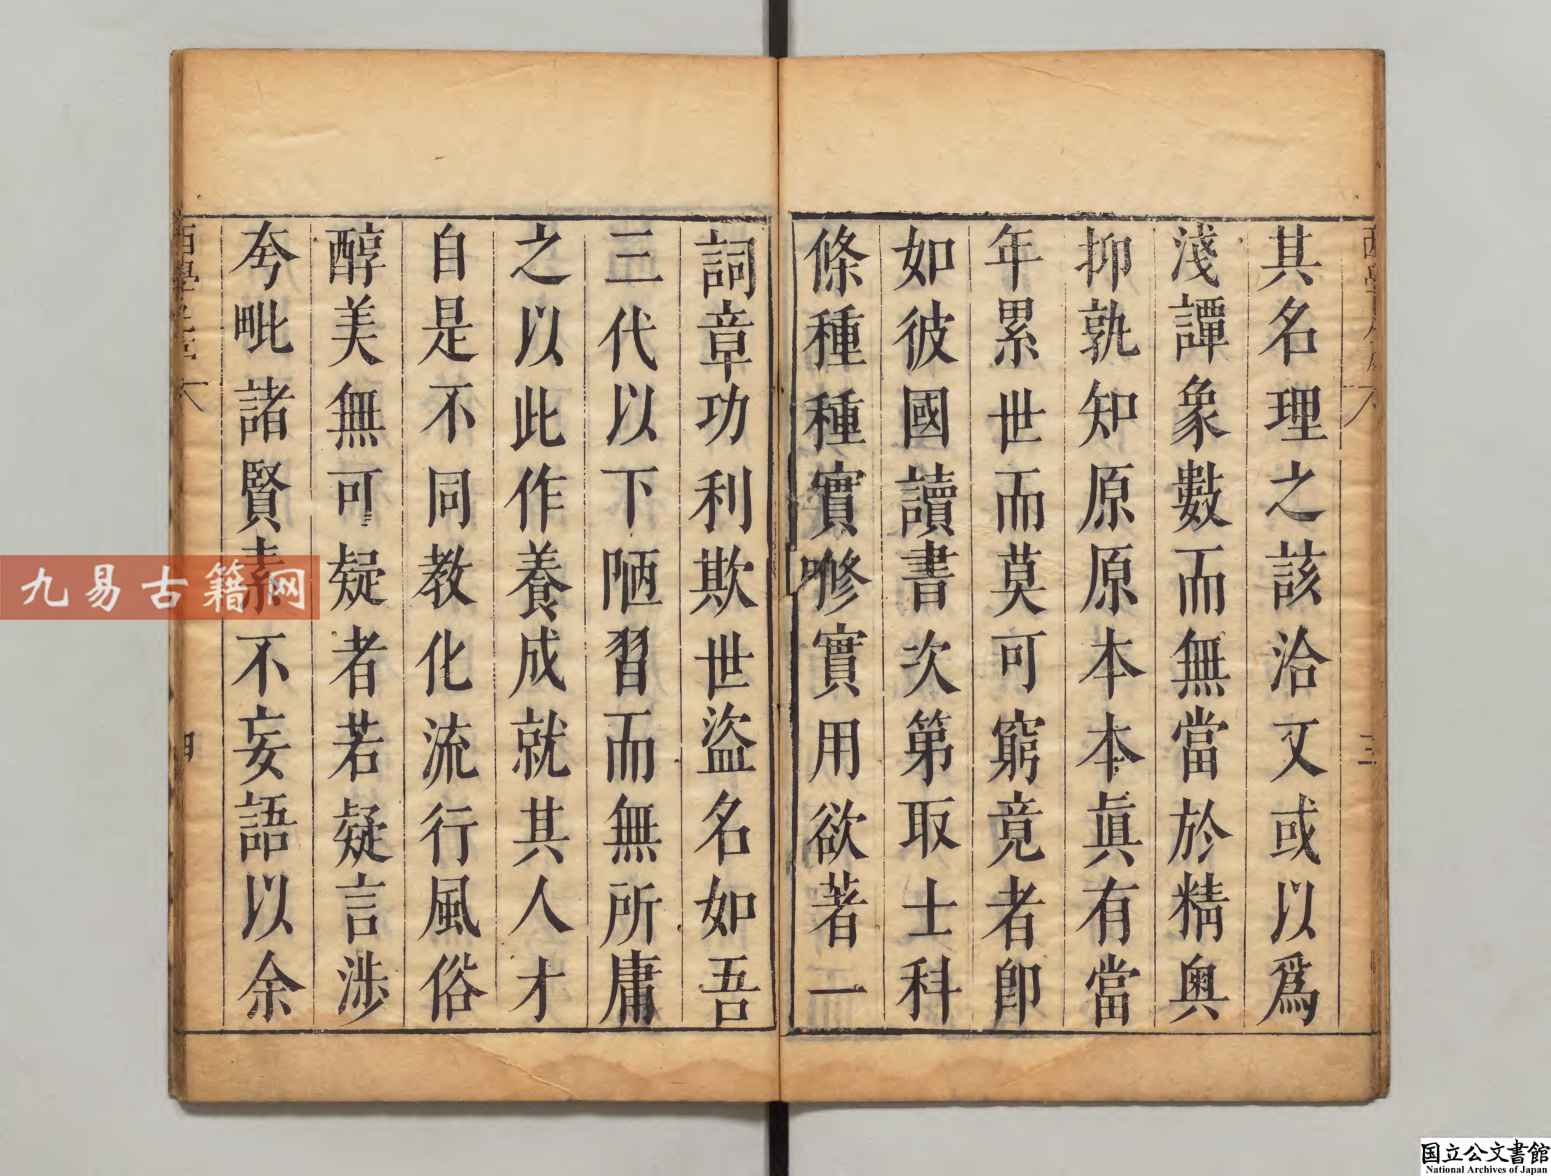 其名理之該洽又或以爲
淺譚象數而無當於精奥
抑孰知原原本本眞有當
年累世而莫可窮竟者卽
如彼國讀書次第取士科
條種種實修實用欲著一
詞章功利欺世盜名如吾
三代以下陋習而無所庸
之以此作養成就其人才
自是不同教化流行風俗
醇美無可疑者若疑言渉
夸毗諸賢素不妄語以余
九易古籍网
国立公文書館
National Archives of Japan